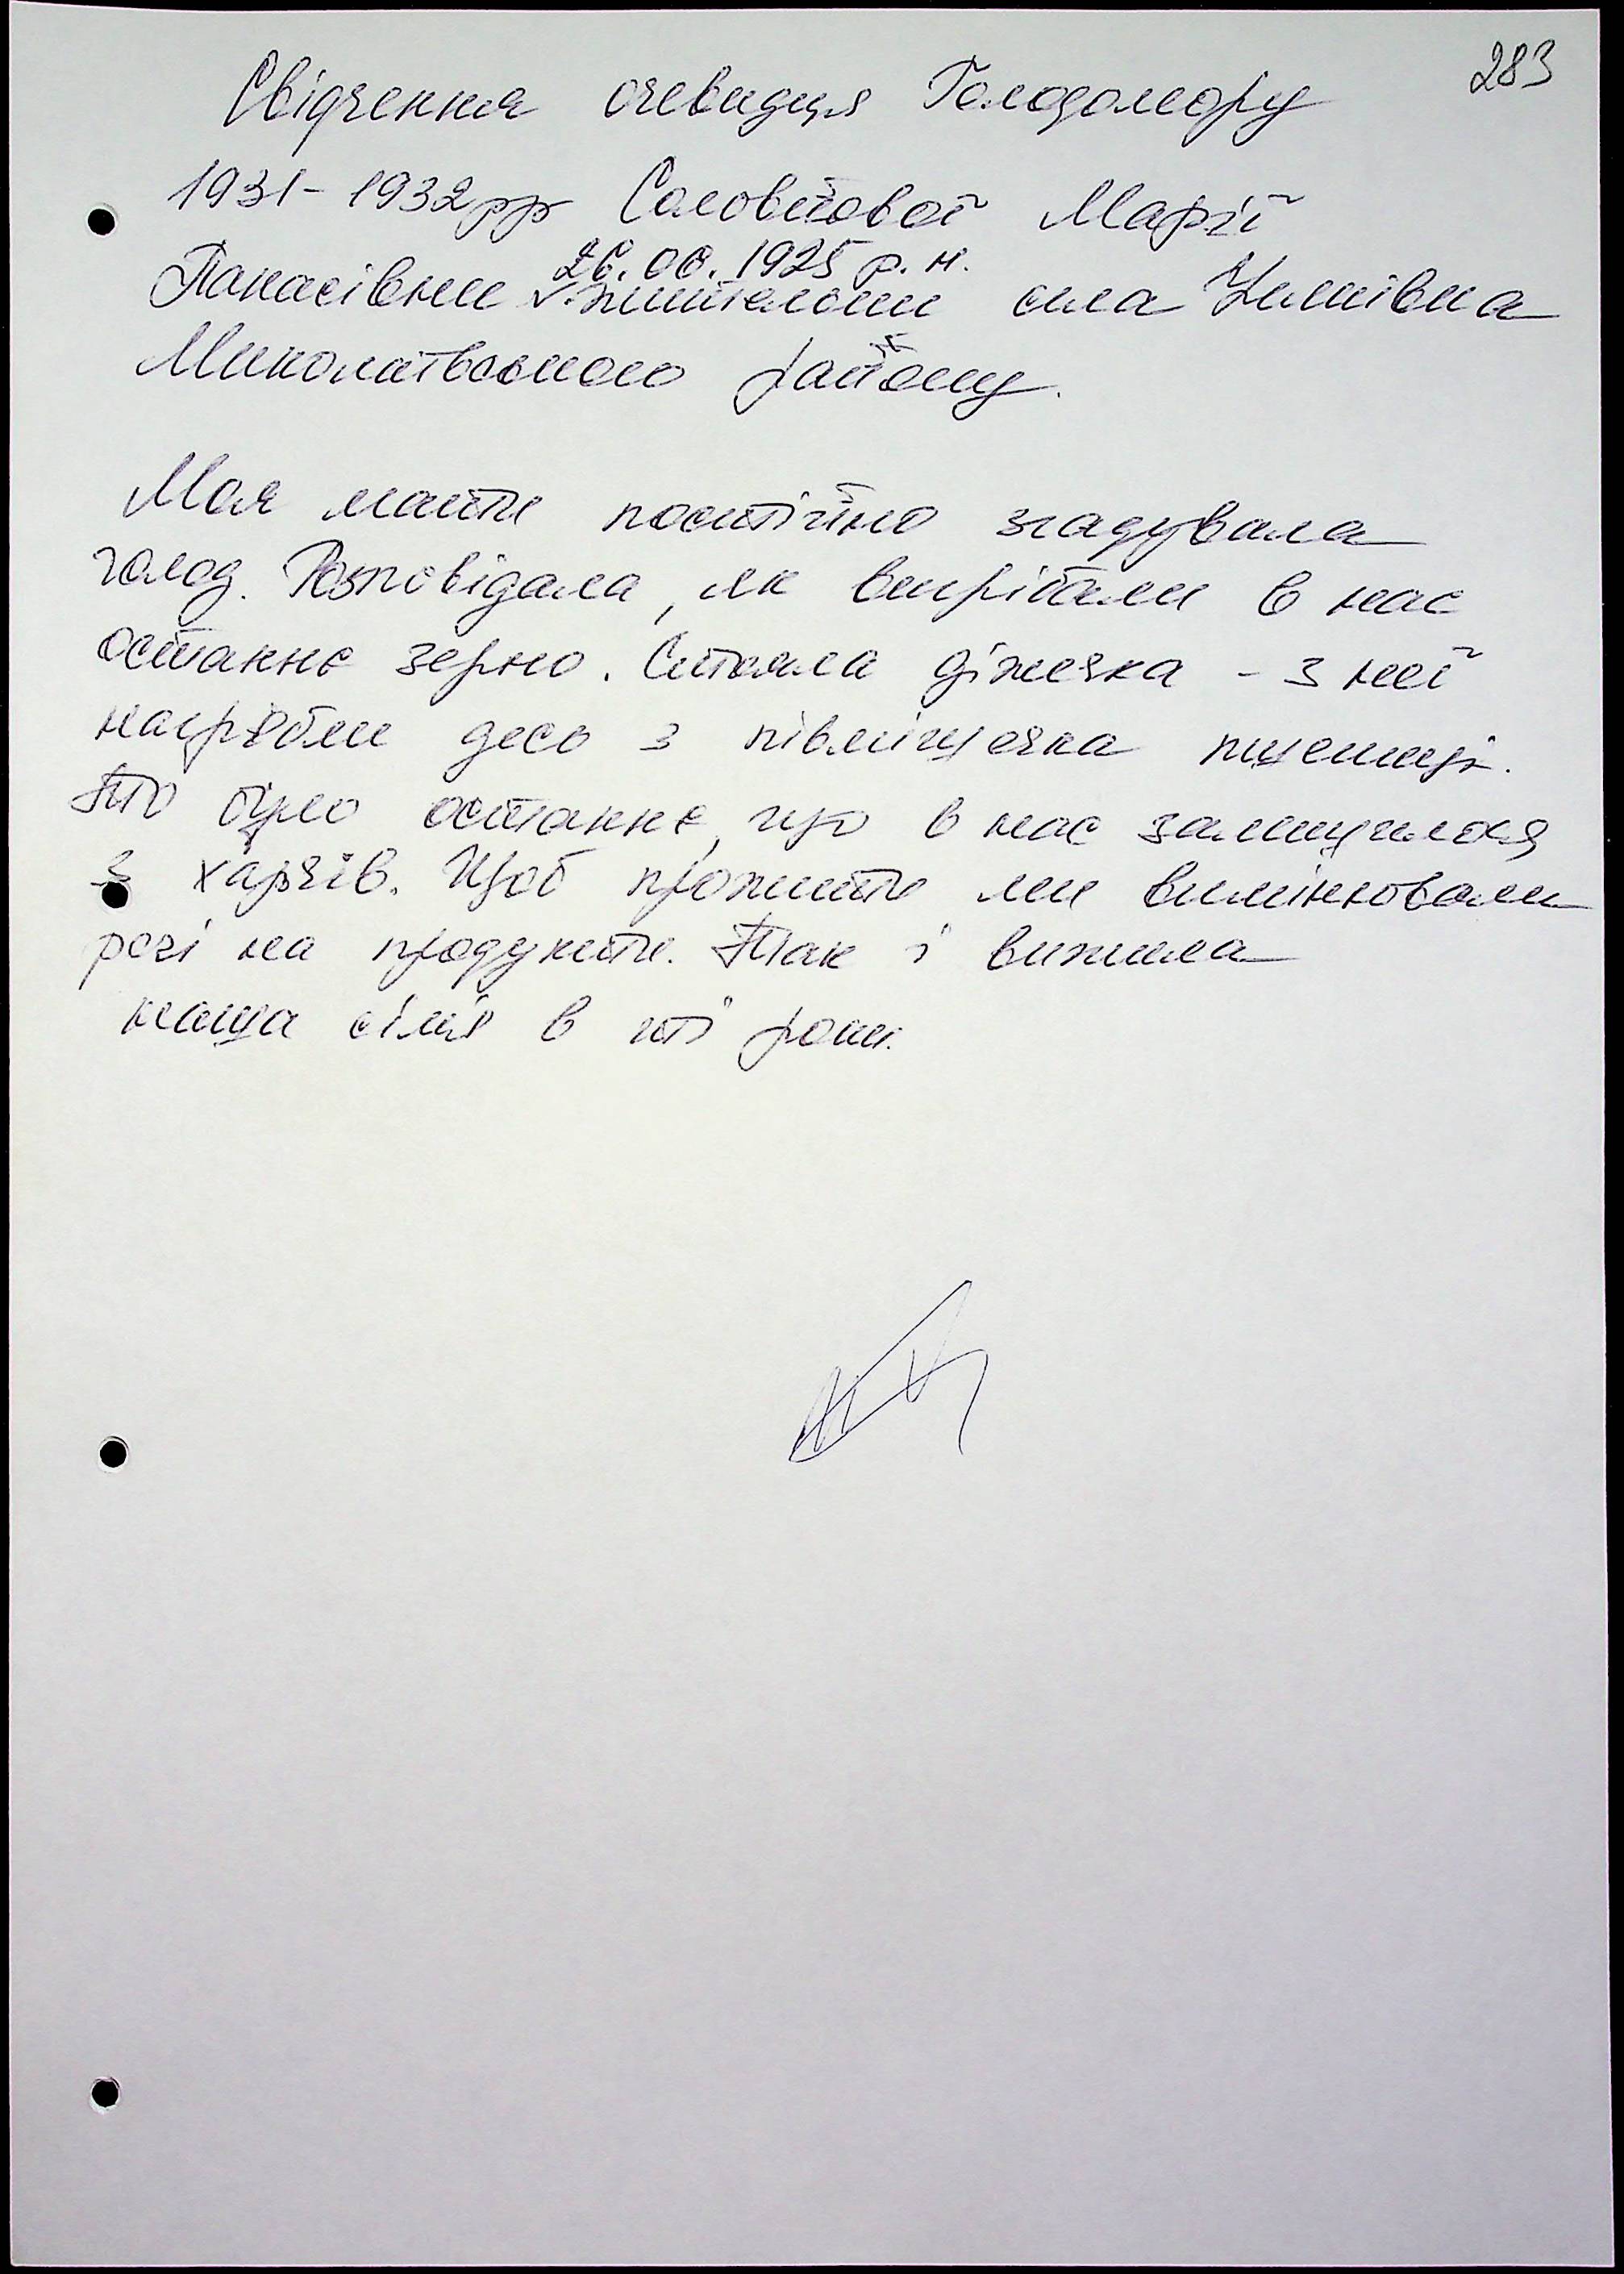 283
Свідчення очевидця Голодомору
1931-1932рр Соловйової Марії
26.08.1925 р.н.
Панасівни жительки села
Миколаївського району.
Моя мати постійно згадувала
голод. Розповідала, як вигрібали в нас
останнє зерно. Стояла діжечка - з неї
нагребли десь з півмішечка пшениці.
То було останнє, що в нас залишилося
з харчів. Щоб прожити ми вимінювали
речі на продукти. Так і вижила
наша сімя в ті роки.